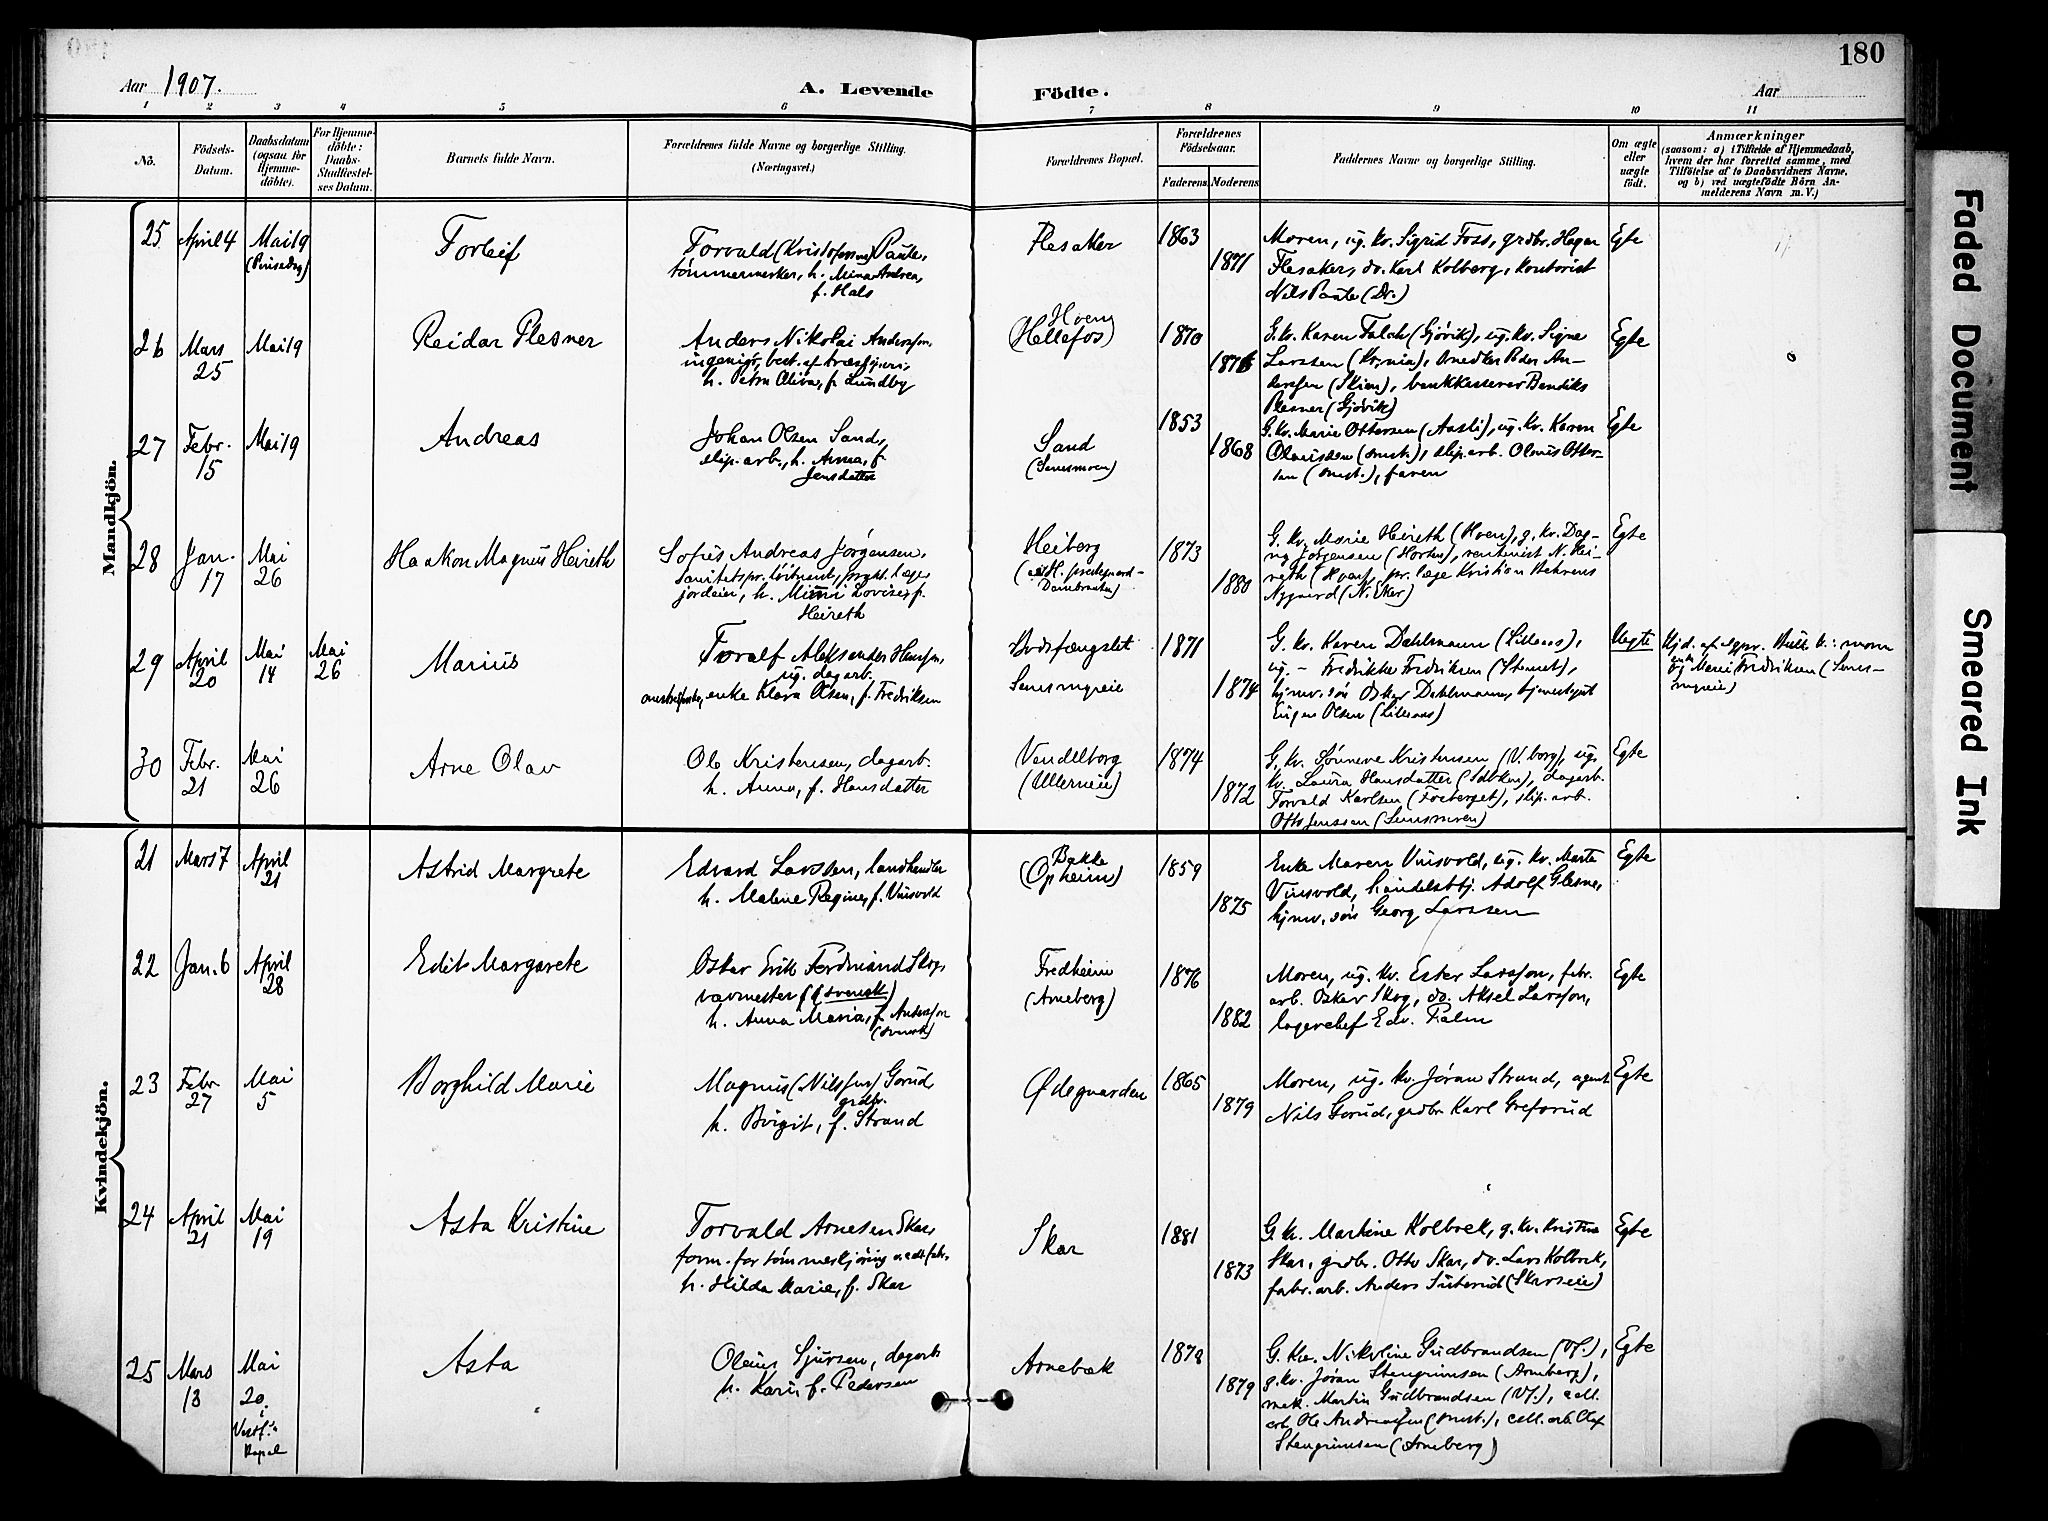 180
Aar 1907.
A. Levende Födte.
Aar
1 2 3 4 5 6 7 8 9 10 11
No.
Födsels-Datum.
Daabsdatum (ogsaa for Hjemme-döbte).
For Hjemme-döbte: Daabs-Stadfæstel-ses Datum.
Barnets fulde Navn.
Forældrenes fulde Navne og borgerlige Stilling.
(Næringsvei.)
Forældrenes Bopæl.
Forældrenes Födselsaar.
Faderens. Moderens.
Faddernes Navne og borgerlige Stilling.
Om ægte eller uægte födt.
Anmærkninger
(saasom: a) i Tilfælde af Hjemmedaab,
hvem der har forrettet samme, med
Tilföielse af to Daabsvidners Navne,
og b) ved uægtefödte Börn An-
melderens Navn m. V.)
Mandkjön.
25 April 4 Mai 19 (Pinsedag)
Torleif
Torvald (Kristofersen) Paule,
tømmermerker, h. Mina Andrea,
f. Hals
Flesaker
1863
1871
Moren, ug. kv. Sigrid Foss, grdbr. Hagen
Flesaker, do. Karl Kolberg, kontorist
Nils Paule (Dr.)
Egte
26 Mars 25 Mai 19
Reidar Plesner
Anders Nikolai Andersen,
ingeniør, best. af træsliperi,
h. Petra Oliva, f. Lundby
Hoen
(Hellefos)
1870
1876
G. kv. Karen Falch (Gjøvik), ug. kv. Signe
Larssen (Kr,nia), Peder An-
dersen (Skien), bankkasserer Bendiks
Plesner (Gjøvik)
Egte
27 Febr. 15 Mai 19
Andreas
Johan Olsen Sand,
slip.arb., h. Anna, f.
Jensdatter
Sand
(Semsmoen)
1853
1868
G. kv. Marie Ottersen (Aasli), ug. kv. Karen
Olausen (smst.), slip.arb. Olaus Otter-
sen (smst.), faren
Egte
28 Jan. 17 Mai 26
Haakon Magnus Heireth
Sofus Andreas Jørgensen,
sanitetspr.løitnant, prakt. læge,
jordeier, h. Mimi Lovise, f.
Heireth
Heiberg
1873
1880
G. kv. Marie Heireth (Hoen), g. kv. Dag-
ny Jørgensen (Horten), rentenist N. Hei-
reth (Hoen), pr. læge Kristian Behrens
Nygaard (N. Eker)
Egte
29 April 20 Mai 14 Mai 26
Marius
Toralf Aleksander Hansen,
ug. dagarb.
enke Klara Olsen, f. Fredriksen
Bodsfængslet
Semsmyreie
1871
1874
G. kv. Karen Dahlmann (Lilleaas),
ug. – Fredrikke Fredriksen (Stenset),
hjmv. søn Oskar Dahlmann,
Eugen Olsen (Lilleaas)
Uegte
Marie Fredriksen (Sems-
myreie)
30 Febr. 21 Mai 26
Arne Olav
Ole Kristensen, dagarb.
h. Anna, f. Hansdatter
Vendelborg
(Ullerneie)
1874
1872
G. kv. Sønneve Kristensen (V.borg), ug.
kv. Laura Hansdatter, dagarb.
Torvald Karlsen (Foreberget), slip.arb.
Otto Jenssen (Semsmoen)
Egte
Kvindekjön.
21 Mars 7 April 21
Astrid Margrete
Edvard Larssen, landhandler
h. Malene Regine, f. Vinsvold
Bakke
(Opheim)
1859
1875
Enke Maren Vinsvold, ug. kv. Marta
Vinsvold, handelsbtj. Adolf Glesne,
hjmv. søn Georg Larssen
Egte
22 Jan. 6 April 28
Edit Margarete
Oskar Erik Ferdinand Skog,
vævmester (svensk)
h. Anna Maria, f. Andersson
(svensk)
Fredheim
(Arneberg)
1876
1882
Moren, ug. kv. Ester Larsson, fabr.
arb. Oskar Skog, do. Aksel Larsson,
lagerchef Edv. Palm
Egte
23 Febr. 27 Mai 5
Borghild Marie
Magnus (Nilssen) Gorud
grdbr.
h. Birgit, f. Strand
Ødegaarden
1865
1879
Moren, ug. kv. Jøran Strand, agent
Nils Gorud, grdbr. Karl Grefsrud
Egte
24 April 21 Mai 19
Asta Kristine
Torvald Arnesen Skar,
form. for tømmerkjøring v. cell.fabr.
h. Hilda Marie, f. Skar
Skar
1881
1873
G. kv. Martine Kolbrek, g. kv. Kristine
Skar, grdbr. Otto Skar, do. Lars Kolbrek,
fabr.arb. Anders Suterud (Skarseie)
Egte
25 Mars 13 Mai 20. i Vestf.'s Kapel
Asta
Oleus Sjursen, dagarb.
h. Kari f. Pedersen
Arnebæk
1878
1879
G. kv. Nikoline Gudbrandsen (Vf.),
g. kv. Jøran Stengrimsen (Arneberg),
mek. Martin Gudbrandsen (Vf.), cell.
arb. Ole Andreassen (smst.), cell.arb. Olaf
Stengrimsen (Arneberg)
Egte
Faded Document
Smeared Ink